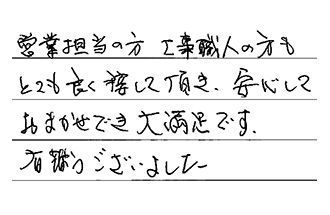 営業担当の方 工事職人の方も
とても良く接して頂き、安心して
おまかせでき大満足です。
有難うございました